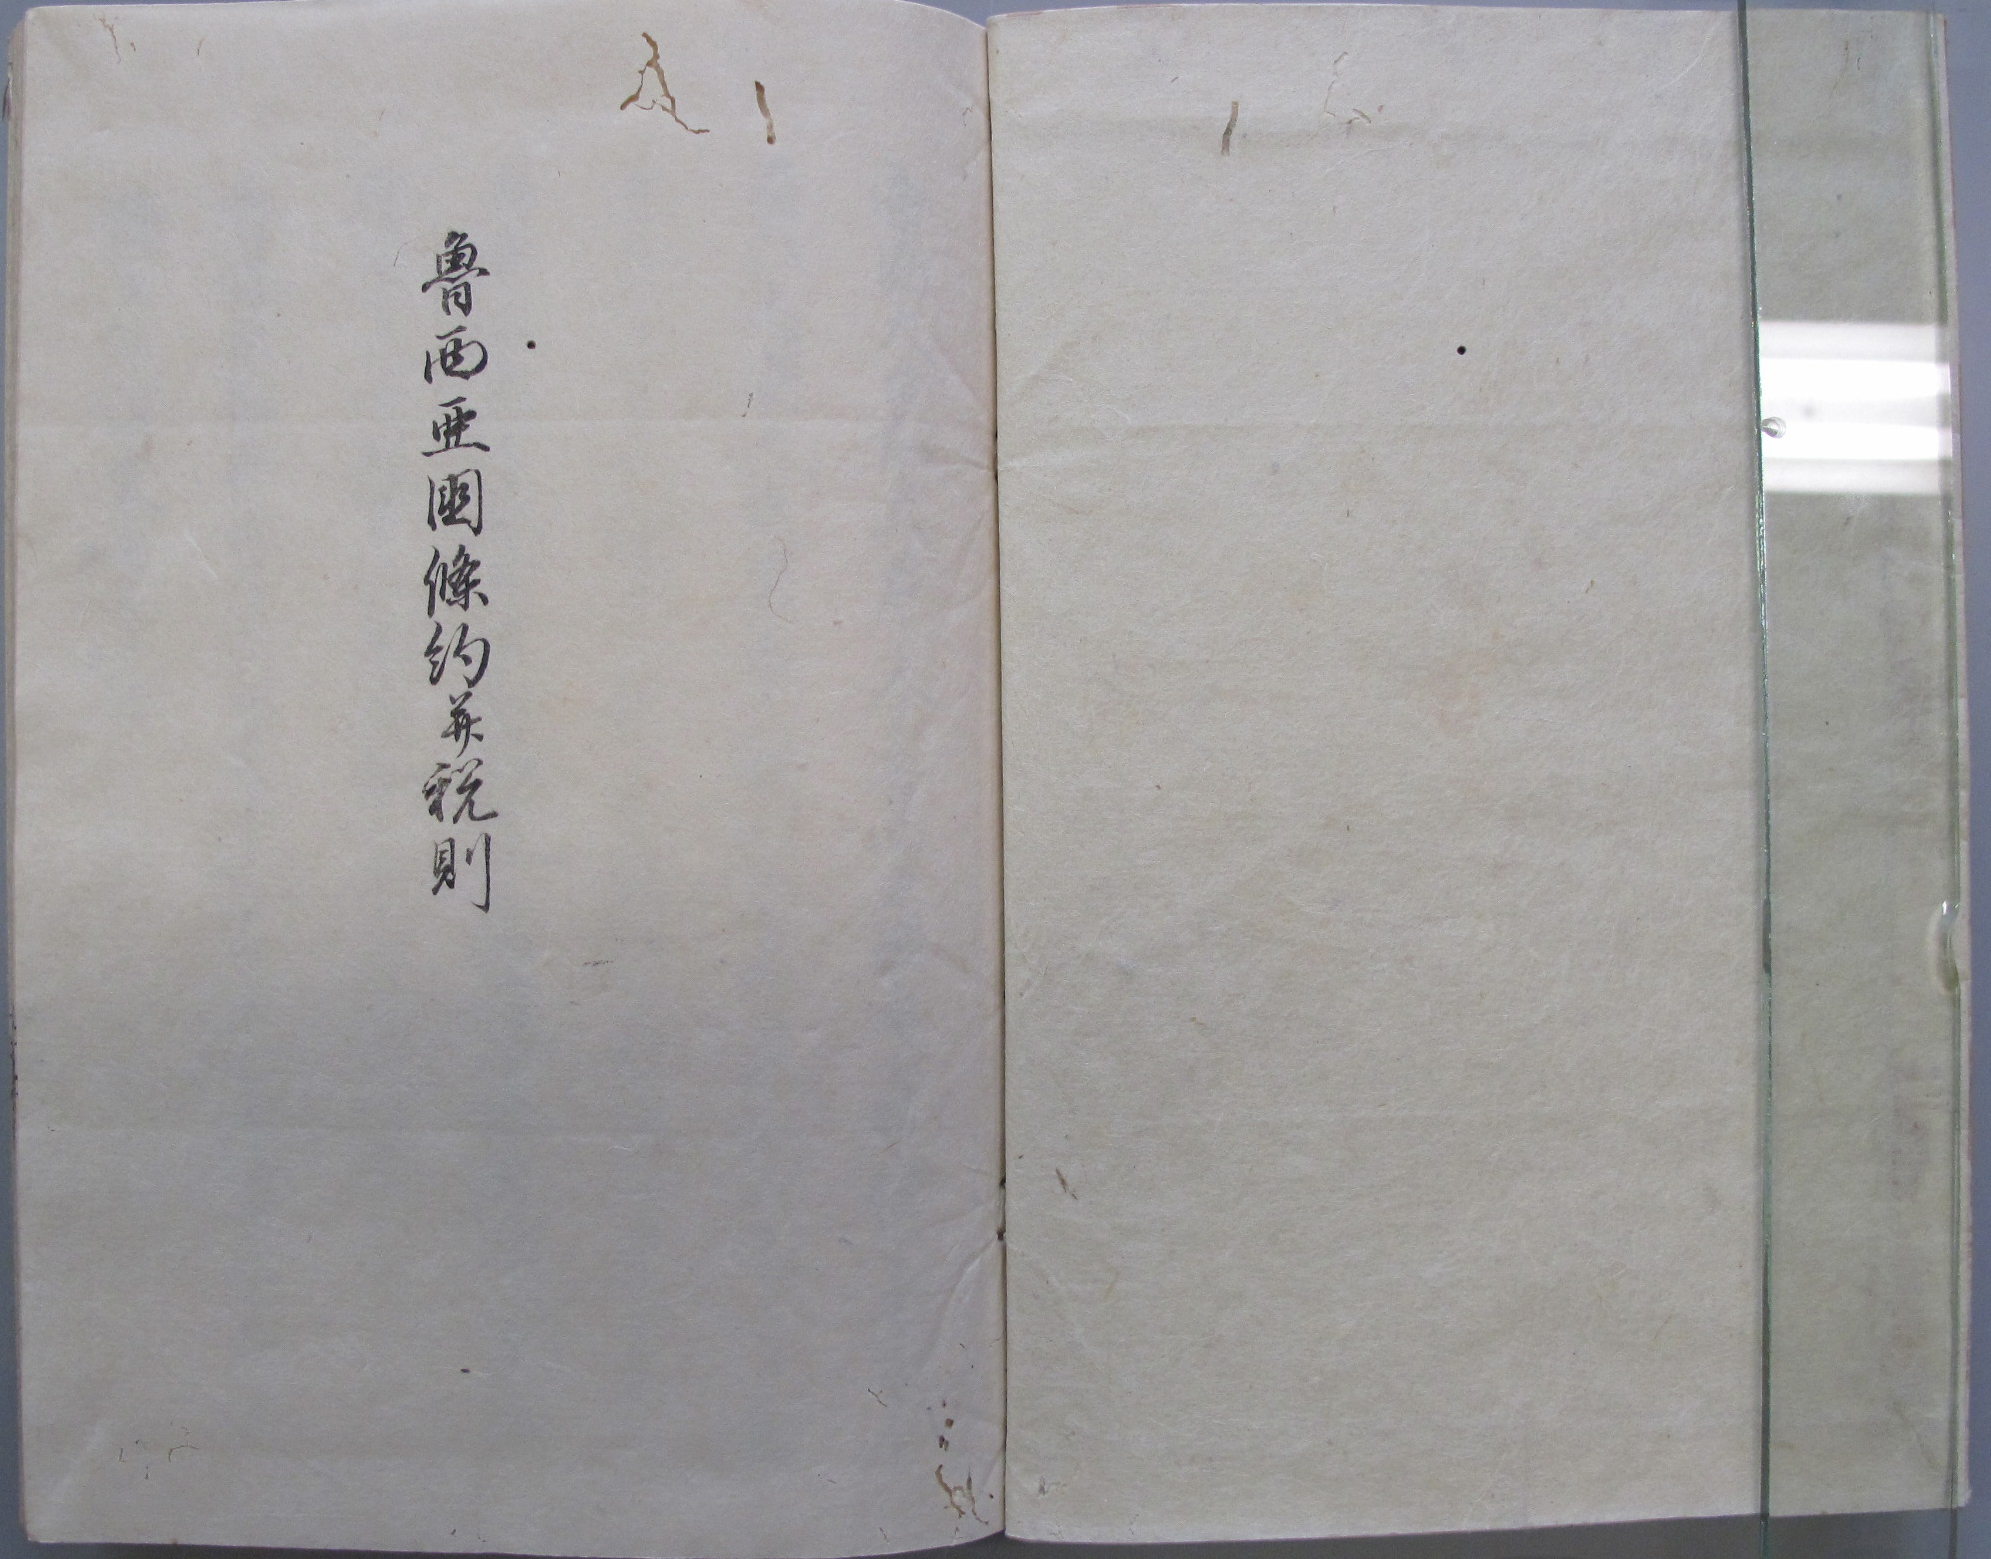 魯西亜國條約并税則